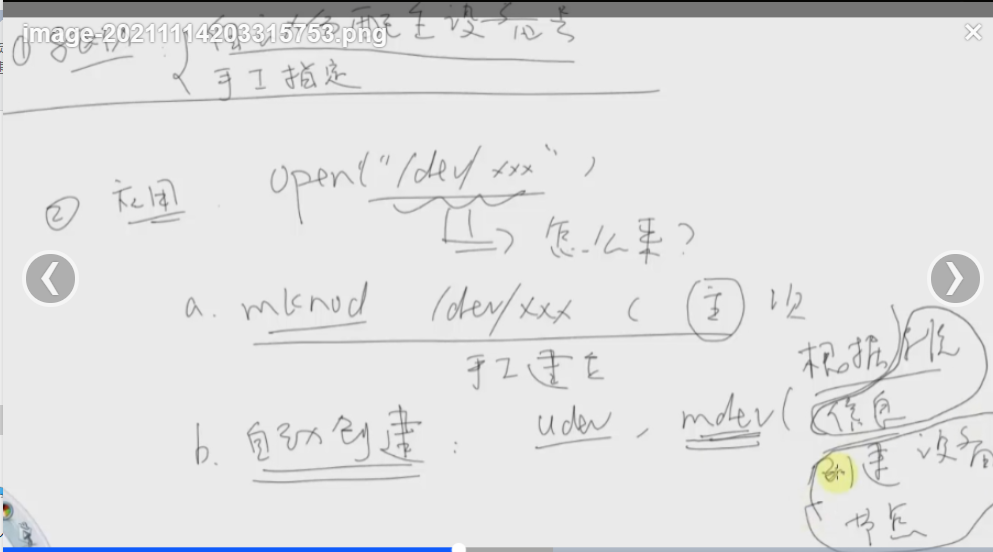 image-20211114203315753.png
① 驱动: { 自动分配主设备号
手工指定
② 应用 open("/dev/xxx",
怎么来?
a. mknod /dev/xxx c 主 次
手工建立
b. 自动创建: udev, mdev(根据系统
信息
创建设备
节点